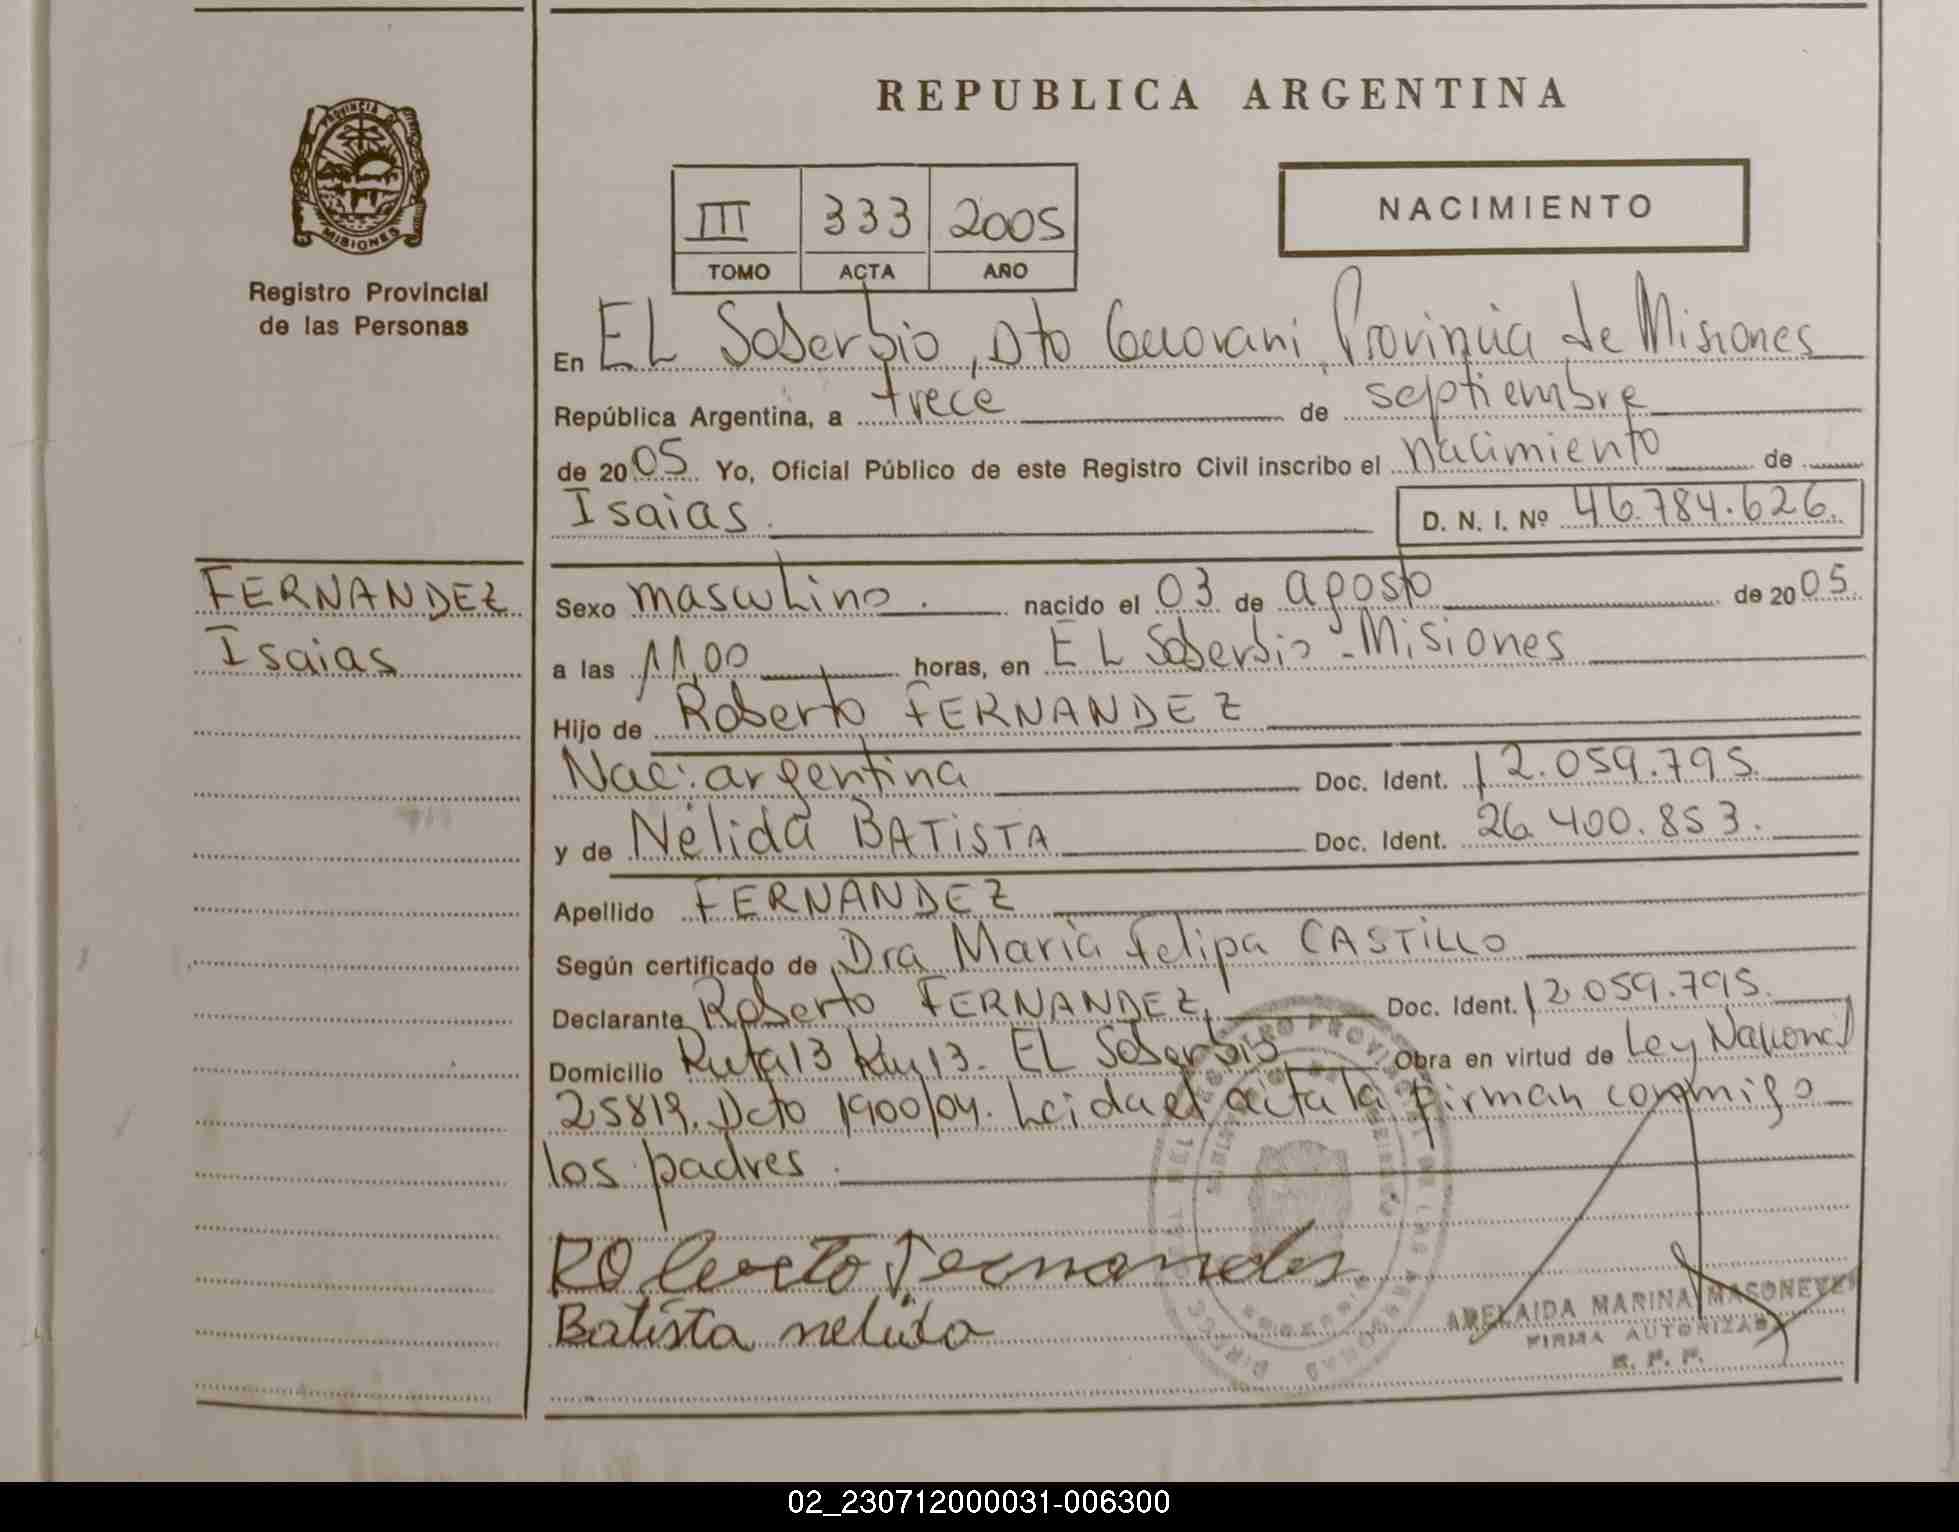 REPUBLICA ARGENTINA
PROVINCIA DE
MISIONES
Registro Provincial
de las Personas
III 333 2005
TOMO ACTA AÑO
NACIMIENTO
En EL Soberbio, Dto Guarani Provincia de Misiones
República Argentina, a trece de septiembre
de 2005 Yo, Oficial Público de este Registro Civil inscribo el nacimiento de
Isaias. D. N. I. Nº 46.784.626.
FERNANDEZ
Isaias
Sexo masculino. nacido el 03 de agosto de 2005.
a las 11,00 horas, en EL Soberbio - Misiones
Hijo de Roberto FERNANDEZ
Nac: argentina Doc. Ident. 12.059.795.
y de Nélida BATISTA Doc. Ident. 26.400.853.
Apellido FERNANDEZ
Según certificado de Dra Maria Felipa CASTILLO
Declarante Roberto FERNANDEZ, Doc. Ident. 12.059.795.
Domicilio Ruta 13 Km 13. EL Soberbio Obra en virtud de Ley Nacional
25819. Dcto 1900/04. Leida el acta la firman conmigo
los padres.
Roberto Fernandes
Batista nelida
ADELAIDA MARINA
FIRMA AUTORIZADA
R. P. P.
02_230712000031-006300